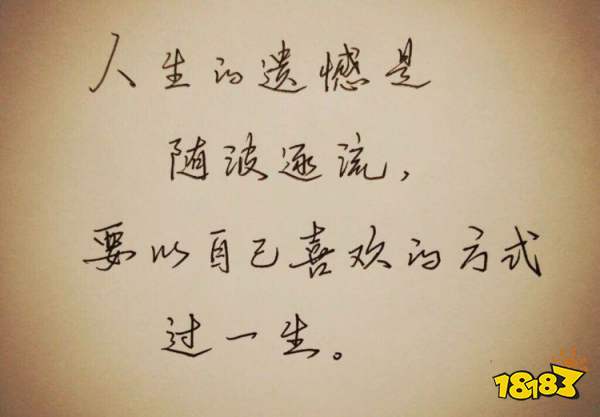 人生的遗憾是
随波逐流，
要以自己喜欢的方式
过一生。
18183